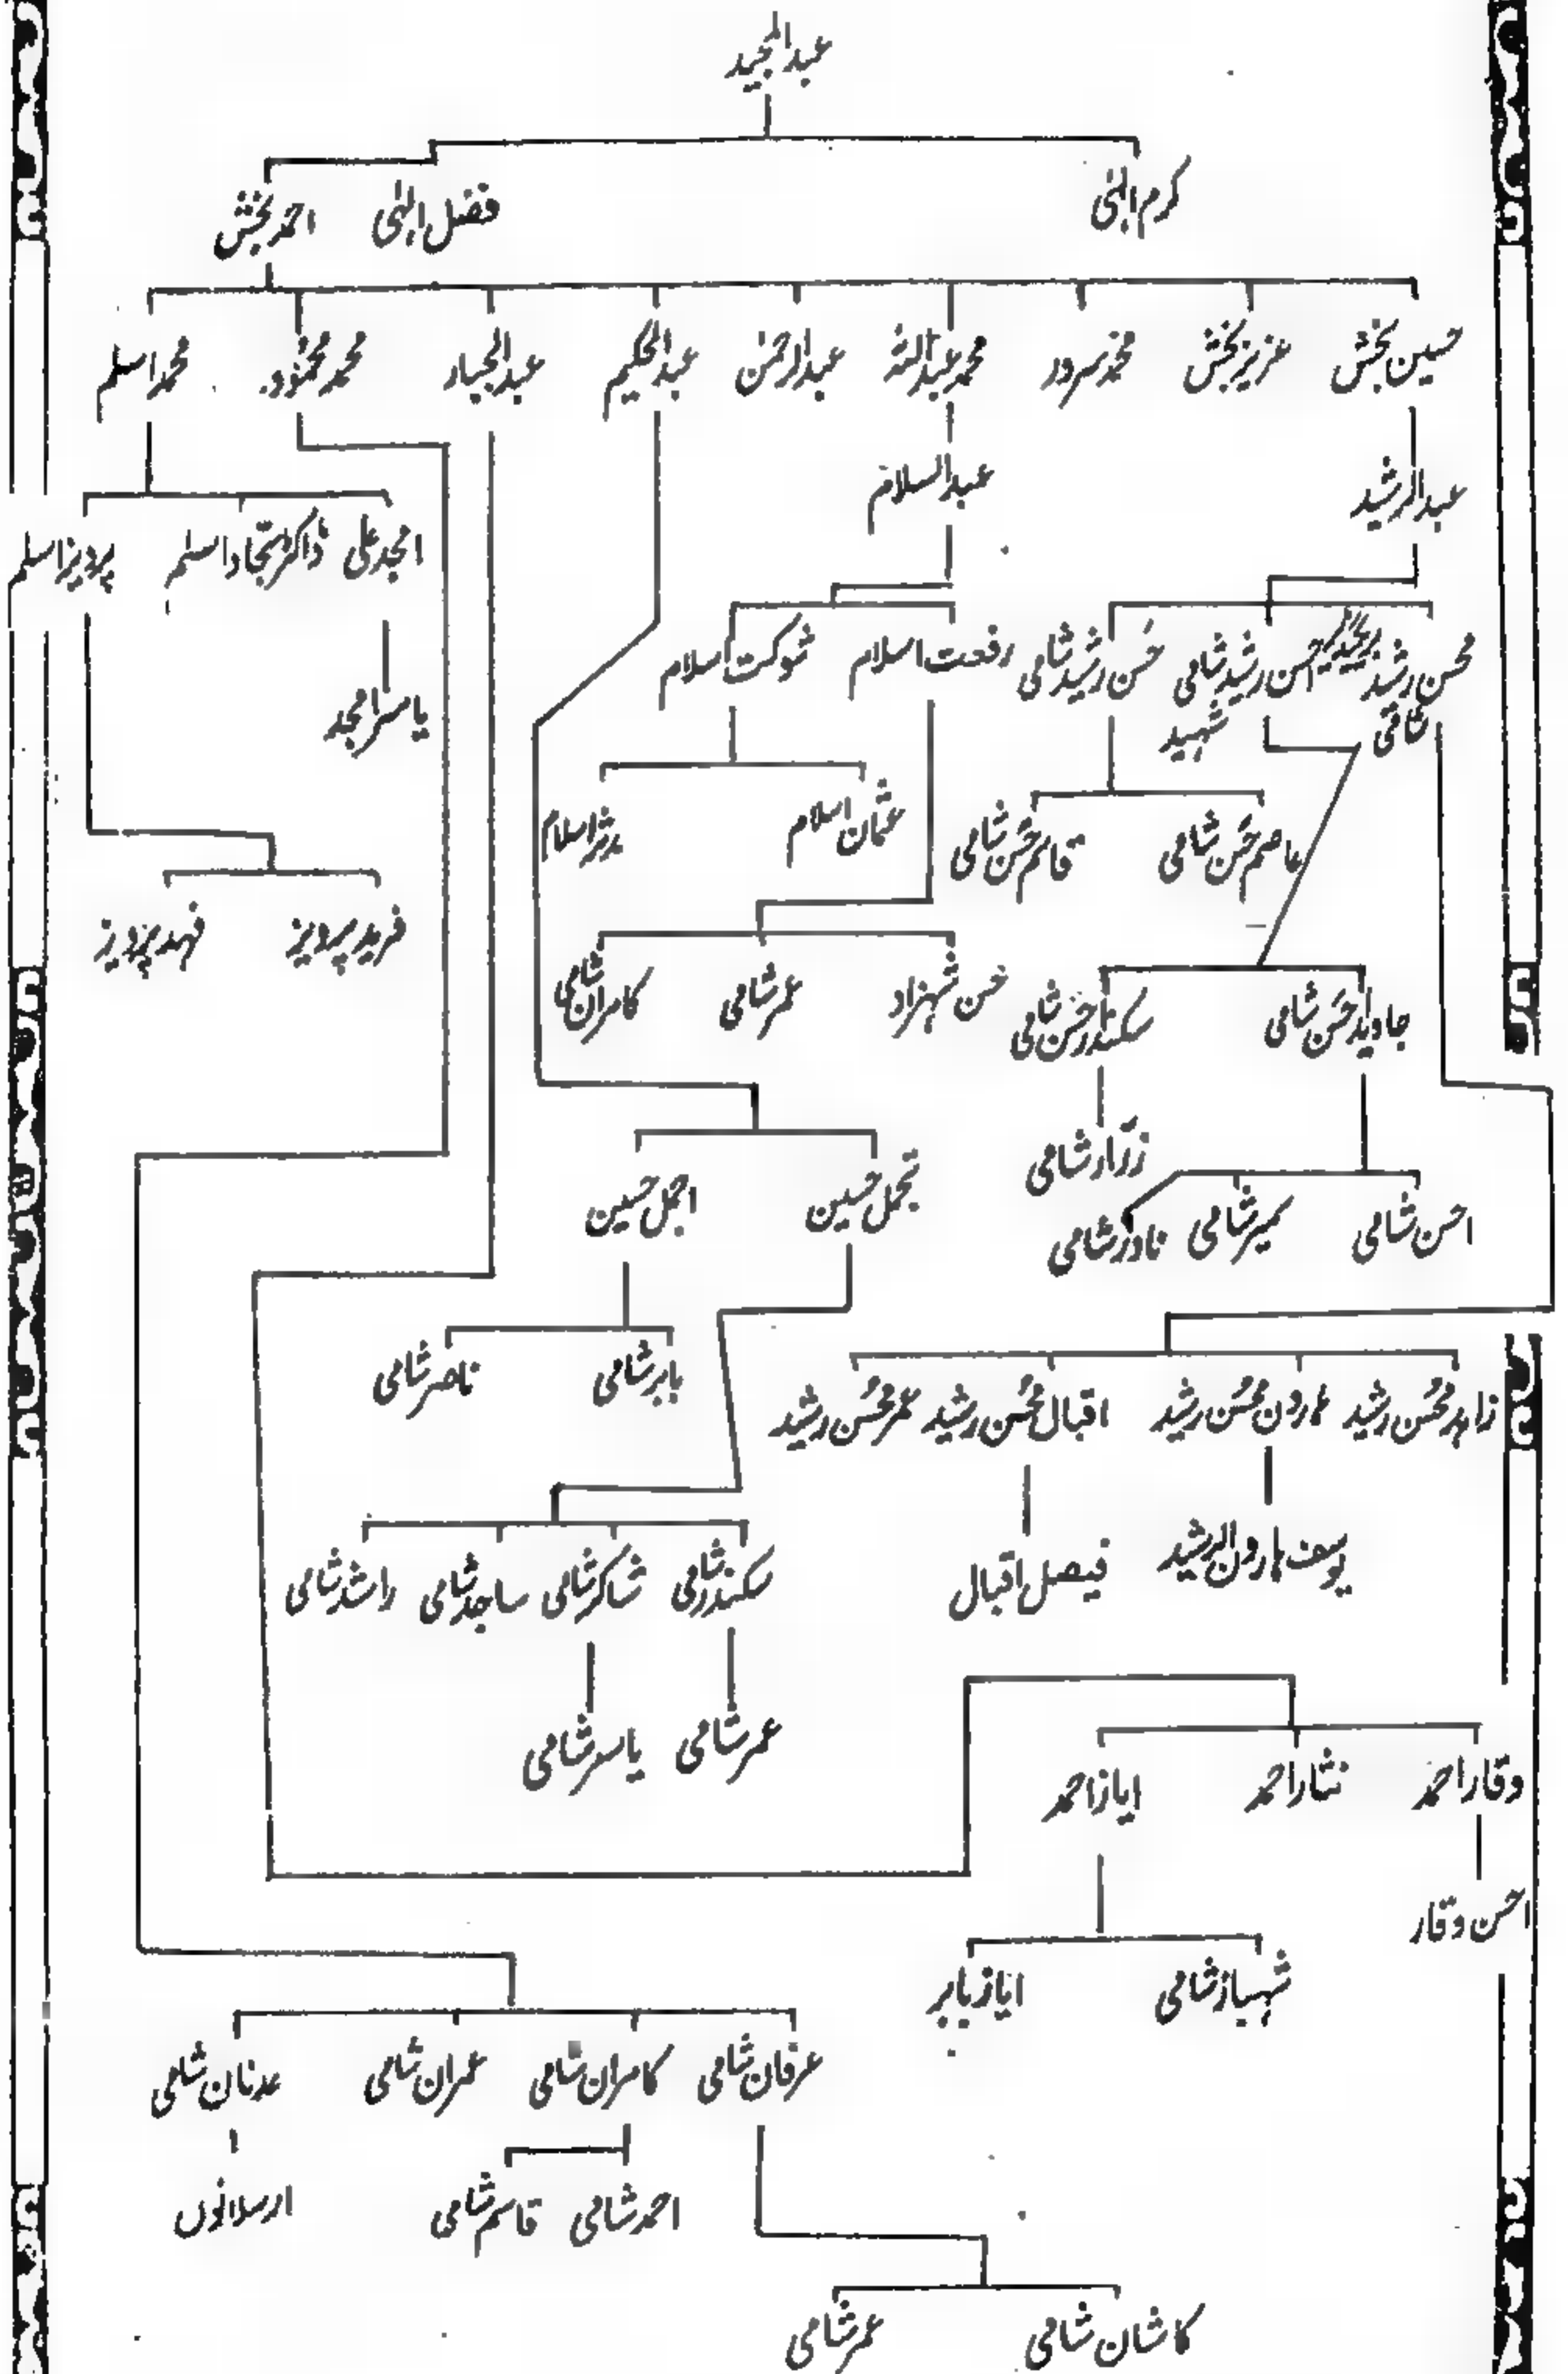 عبدالمجید
کرم الٰہی
فضل الٰہی
احمد بخش
حسین بخش
عزیز بخش
محمد سرور
محمد عبداللہ
عبدالرحمٰن
عبدالحکیم
عبدالجبار
محمد محمود
محمد اسلم
عبدالرشید
عبدالسلام
امجد علی
ڈاکٹر سجاد اسلم
پرویز اسلم
محسن رشید شامی
احسن رشید شامی شہید
حسن رشید شامی
رفعت اسلام
شوکت اسلام
یاسر امجد
عاصم حسن شامی
قاسم حسن شامی
عثمان اسلام
مدثر اسلام
فرید پرویز
فہد پرویز
جاوید احسن شامی
سکندر احسن شامی
حسن شہزاد
عمر شامی
کامران شامی
زرار شامی
احسن شامی
سمیر شامی
نادر شامی
تجمل حسین
اجمل حسین
بابر شامی
ناصر شامی
زاہد محسن رشید
ہارون محسن رشید
اقبال محسن رشید
عمر محسن رشید
یوسف ہارون الرشید
فیصل اقبال
سکندر شامی
شاکر شامی
ساجد شامی
راشد شامی
عمر شامی
یاسر شامی
وقار احمد
نثار احمد
ایاز احمد
احسن وقار
شہباز شامی
ایاز بابر
عرفان شامی
کامران شامی
عمران شامی
عدنان شامی
احمد شامی
قاسم شامی
ارسلانوں
کاشان شامی
عمر شامی